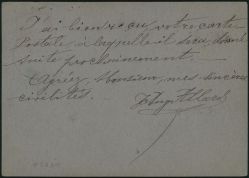 J'ai bien reçu votre carte
Postale à laquelle il sera donné
suite prochainement.
Agréez, Monsieur, mes sincères
civilités.